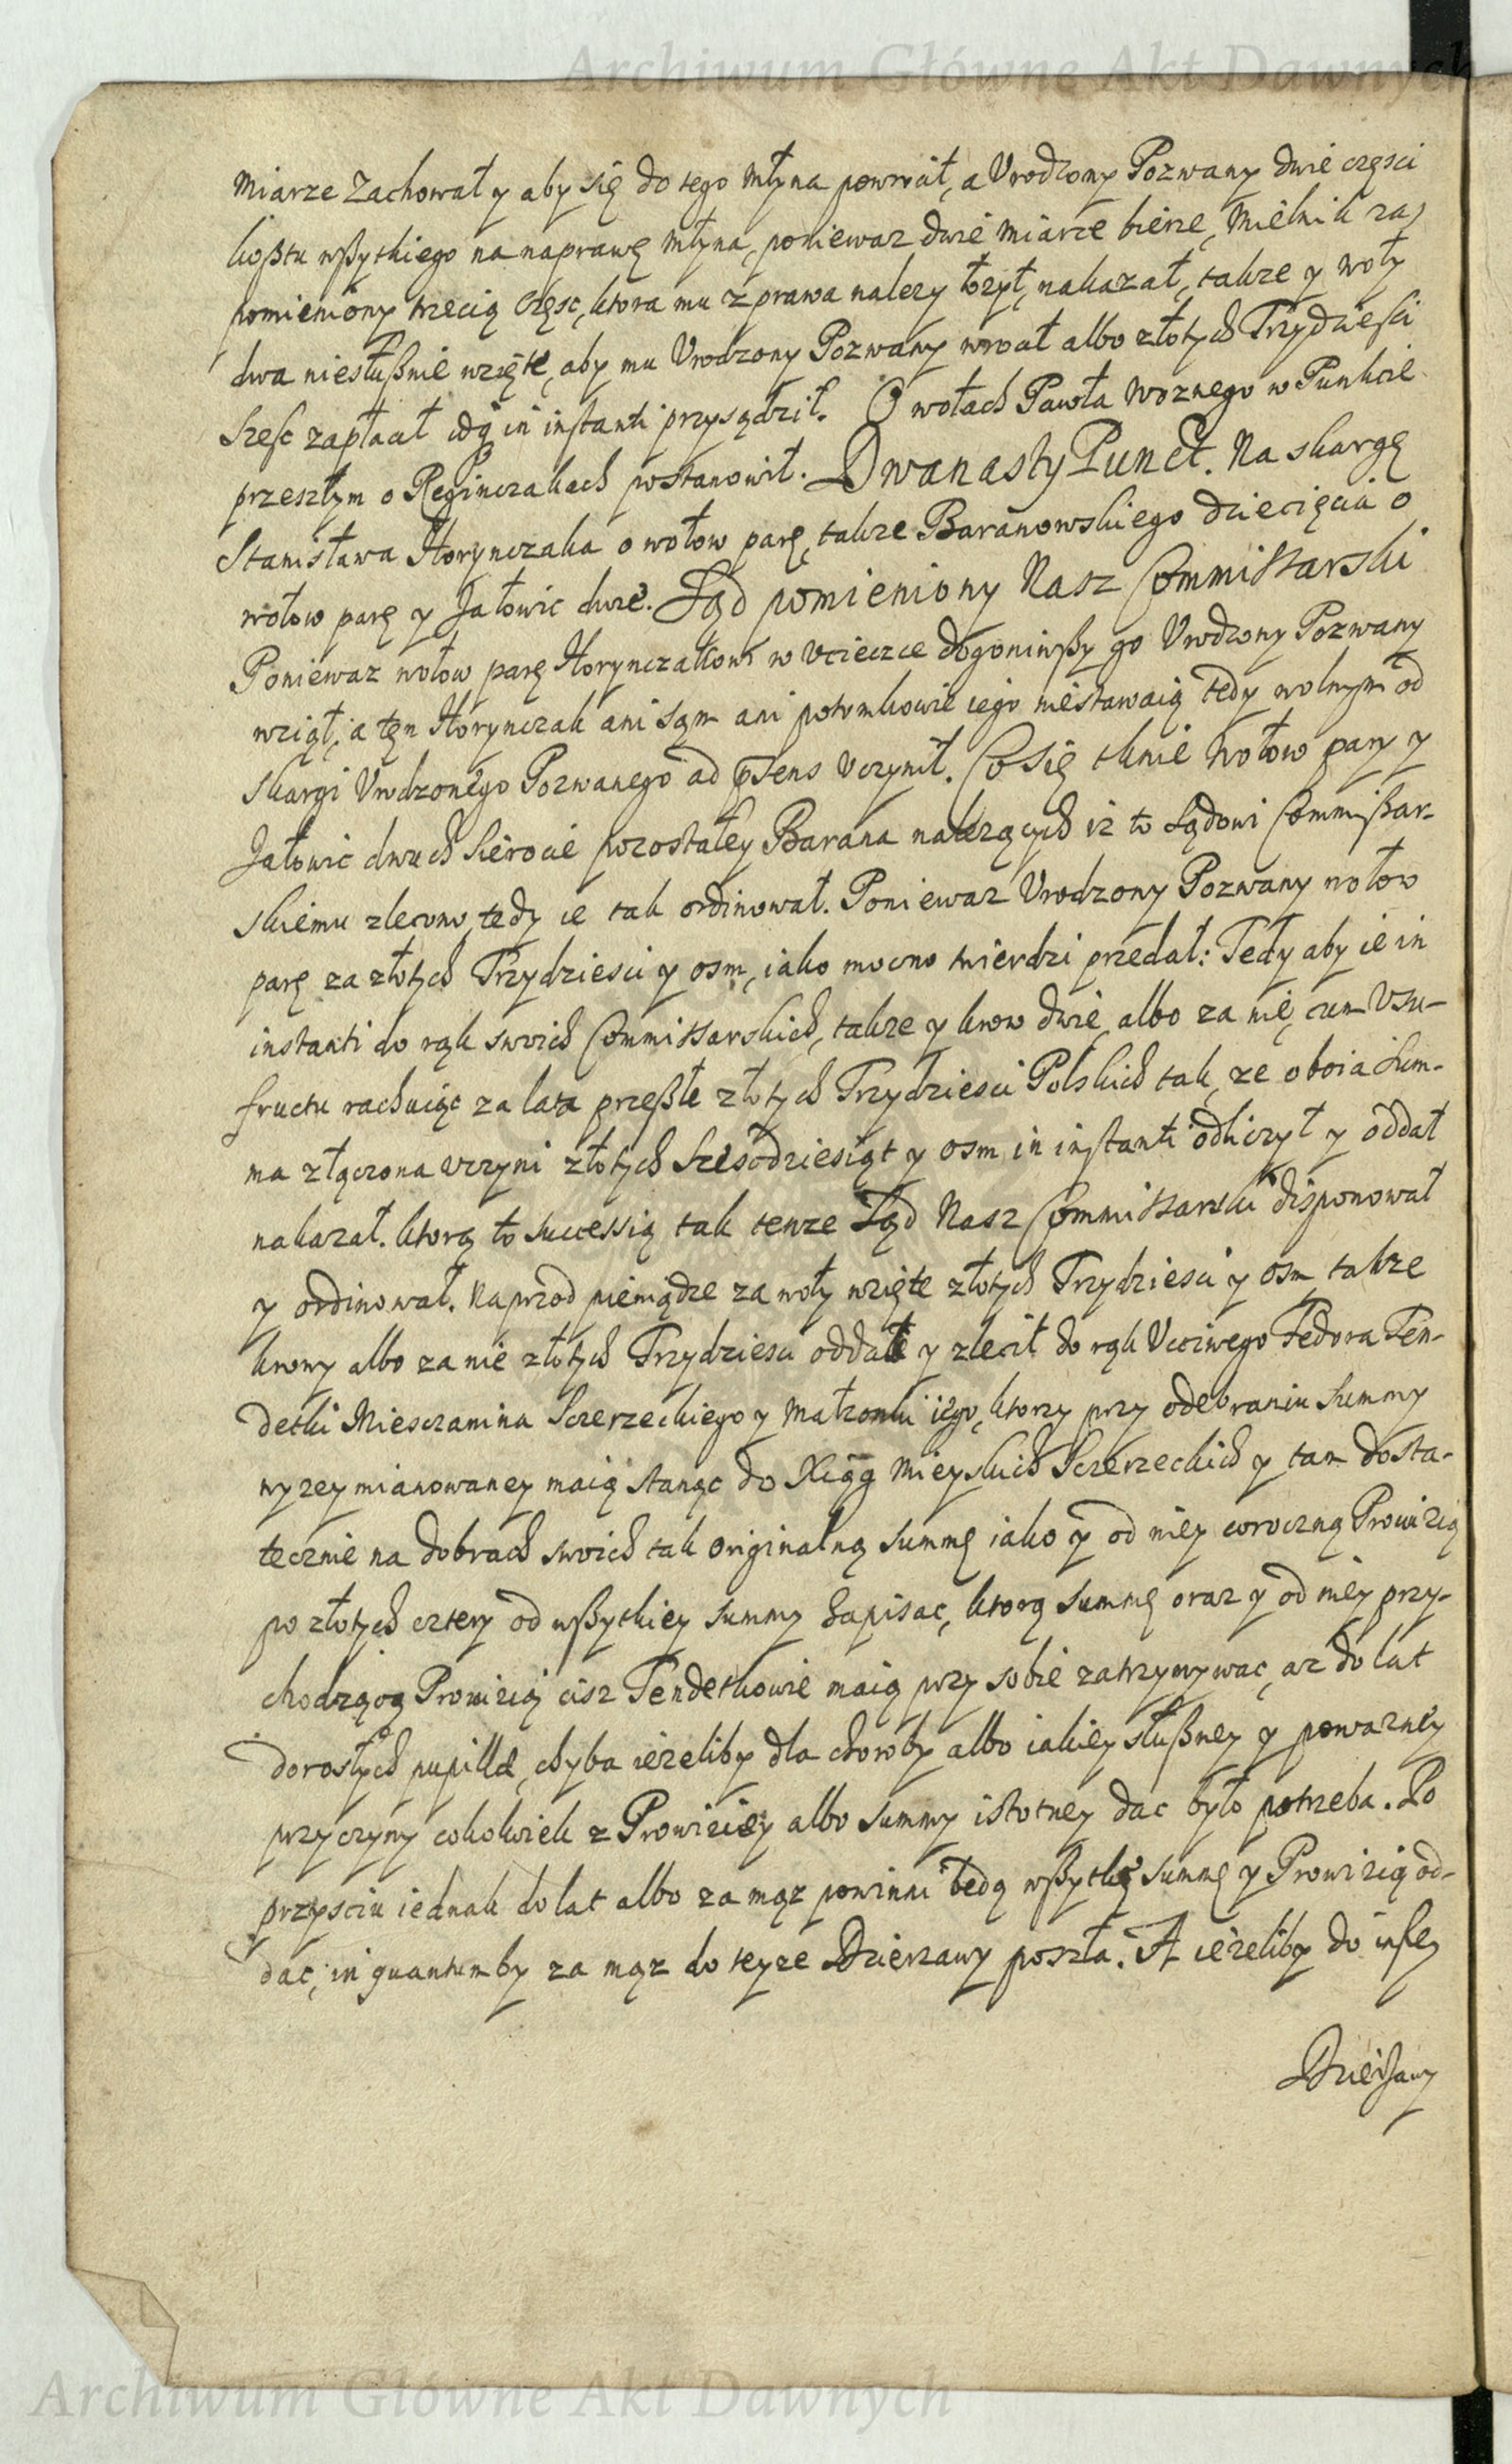 Archiwum Główne Akt Dawnych
miarze zachował y aby się do tego młyna powroćił, a Vrodzony Pozwany dwie częsci
kosztu wßytkiego na naprawę młyna, poniewaz dwie miarze bierze, Mielnik za
pomieniony trzecią częsc, ktora mu z prawa nalezy łozył, nakazał, takze y woły
dwa niesłußnie wzięte, aby mu Vrodzony Pozwany wrocał albo złotych Trzydziesci
szesc zapłacił idq in instanti przysądził. O wołach Pawła Woznego w Punkcie
przeszłym o Reginczakach postanowił. Dwanasty Punct. Na skargę
Stanisława Horynczaka o wołow parę, takze Baranowskiego dziecięcia o
wołow parę y Jałowic dwie. Sąd pomieniony Nasz Commissarski
Poniewaz wołow parę Horynczakowi w vcieczce dogoniwßy go Vrodzony Pozwany
wziął, a ten Horynczak ani sam ani potomkowie iego niestawaią tedy wolnym od
skargi Vrodzonego Pozwanego ad psens vczynił. Co się tknie wołow pary y
Jałowic dwuch sierocie pozostałey Barana nalezących iz to Sądowi Commißar-
skiemu zlecono, tedy ie tak ordinował. Poniewaz Vrodzony Pozwany wołow
parę za złotych Trzydziesci y osm, iako mocno twierdzi przedał: Tedy aby ie in
instanti do rąk swoich Commissarskich, takze y krow dwie, albo za nię, cum vsu-
fructu rachuiąc za lata przeßłe złotych Trzydziesci Polskich tak, ze oboia sum-
ma złączona vczyni złotych szescdziesiąt y osm in instanti odliczył y oddał
nakazał. ktorą to successią tak tenze Sąd Nasz Commissarski disponował
y ordinował. Naprzod pieniądze za woły wzięte złotych Trzydziesci y osm takze
krowy albo za nie złotych Trzydziesci oddał y zlecił do rąk Vcciwego Fedora Ten-
detki Miesczanina Sczerzeckiego y Małzonki iego, ktorzy przy odebraniu summy
wyzey mianowaney maią stanąc do Xiąg Mieyskich Sczerzeckich y tam dosta-
tecznie na dobrach swoich tak originalną summę iako y od niey coroczną Prowizią
po złotych cztery od wßytkiey summy zapisac, ktorą summę oraz y od niey przy-
chodzącą Prowizią cisz Tendetkowie maią przy sobie zatrzymywac, az do lat
dorosłych pupillæ, chyba iezeliby dla choroby albo iakiey słußney y powazney
przyczyny cokolwiek z Prowiziey albo summy istotney dac było potrzeba. Po
przysciu iednak do lat albo za mąz powinni będą wßytkę summę y Prowizią od-
dac, in quantum by za mąz do teyze Dzierzawy poszła. A iezeliby do inßey
Dzierzawy
Archiwum Główne Akt Dawnych